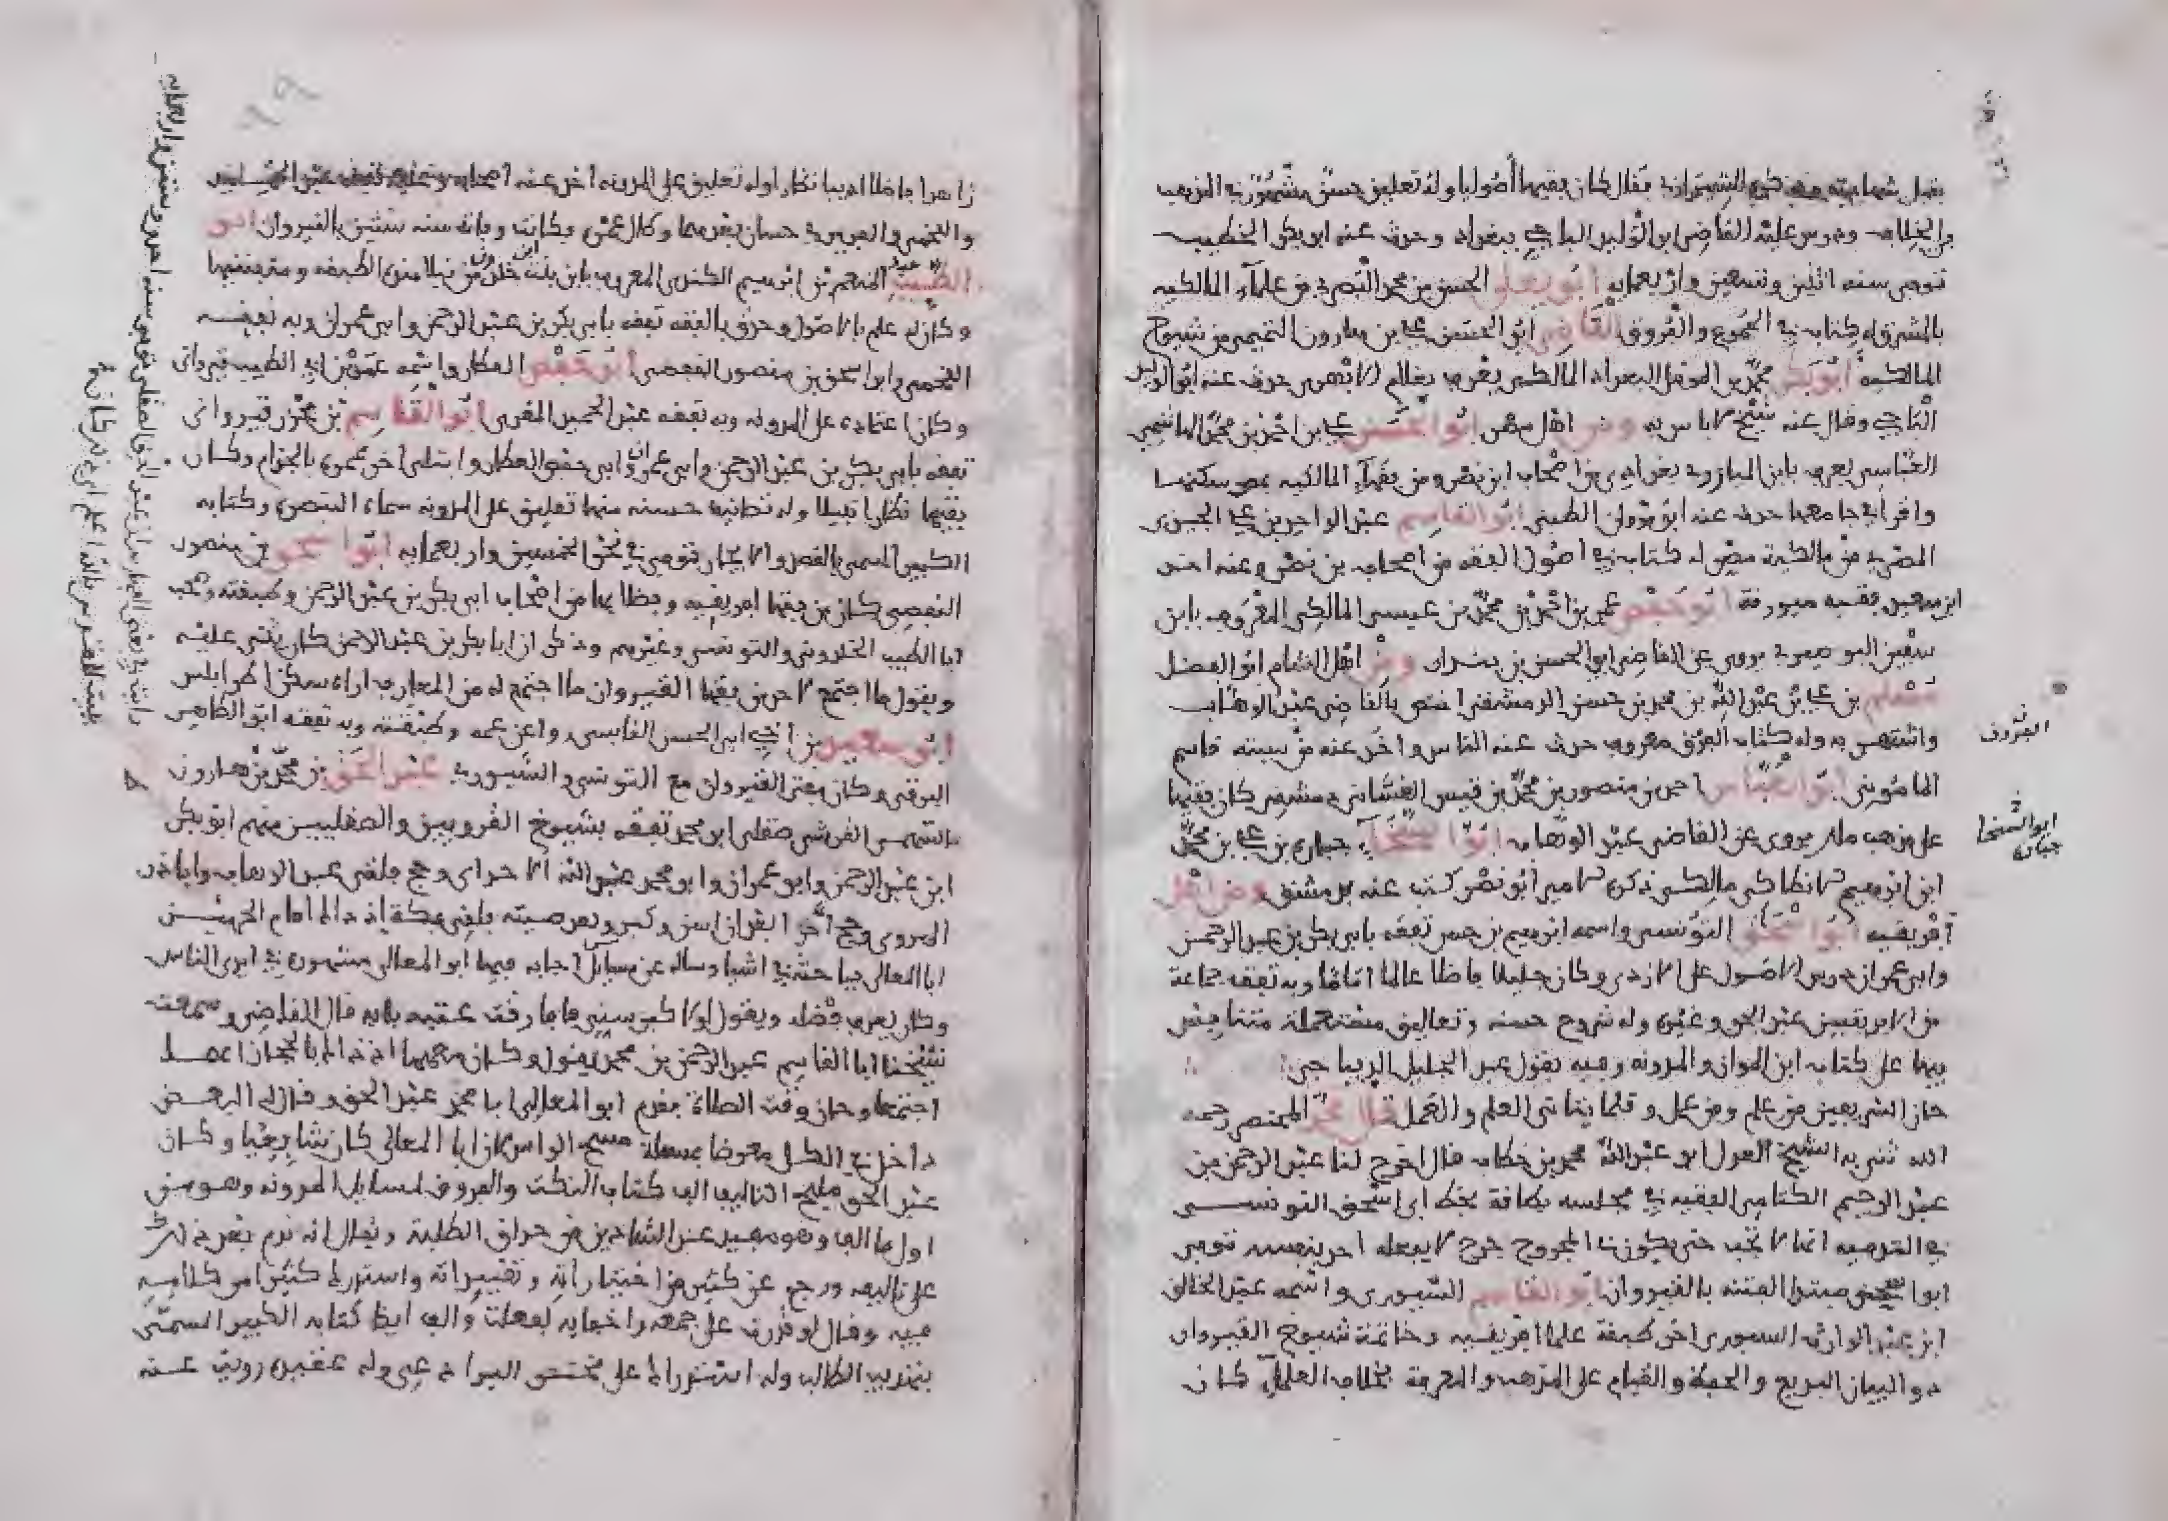 فقبل شهادته وذكره الشيرازي فقال كان فقيها أصوليا وله تعليق حسن مشهور في المذهب
والخلاف ودرس عليه القاضي ابو الوليد الباجي ببغداد وحدث عنه ابو بكر الخطيب
توفي سنة اثنين وخمسين واربعمايه ابو يعلى الحسن بن محمد البصري من علماء المالكيه
بالمشرق له كتابه في الجموع والفروق القاضي ابو الحسن علي بن هارون التميمي من شيوخ
المالكيه ابو بكر محمد بن المؤمل البغداد المالكي يعرف بغلام الابهري حدث عنه ابو الوليد
الباجي وقال عنه شيخ لا باس به ومن اهل مصر ابو الحسن علي بن احمد بن محمد الهاشمي
العباسي يعرف بابن بغدادي من اصحاب ابن نصر ومن فقهاء المالكيه بمصر سكنها
واقرأ في جامعها حدث عنه ابو مروان الطبني ابو القاسم عبد الواحد بن علي
المصري من مالكية مصر له كتابه في اصول الفقه من اصحاب بن نصر وعنه اخذ
ابن سعيد فقيه ميورقة ابو حفص عمر بن احمد بن محمد بن عيسى المالكي المعروف بابن
يروي عن القاضي ابو الحسن بن ومن اهل الشام ابو الفضل
مسلم بن علي بن عبد الله بن محمد بن حسن الدمشقي اختص بالقاضي عبد الوهاب
واشتهر به وله كتاب الفروق معروف حدث عنه الناس واخذ عنه من سبتة قاسم
المأموني ابو العباس احمد بن منصور بن محمد بن قبيس الغساني دمشقي كان فقيها
على مذهب مالك يروي عن القاضي عبد الوهاب ابو بن علي بن محمد
ابن ابراهيم مالكي ذكره الامير ابو نصر كتب عنه بدمشق ومن اهل
افريقيه ابو اسحق التونسي واسمه ابراهيم بن حسن تفقه بابي بكر بن عبد الرحمن
وابي عمران ودرس الاصول على الازدي وكان جليلا فاضلا عالما اماما وبه تفقه جماعة
من الافريقيين عبد الحق وغيره وله شروح حسنه وتعاليق مستعملة متنافس
فيها على كتاب ابن المواز والمدونه وفيه يقول عبد الجليل الديباجي
حاز الشريفين من علم ومن عمل وقلما يتاتى العلم والعمل قال محمد المختصر رحمه
الله ثنى به الشيخ العدل ابو عبد الله محمد بن خطاب قال اخرج لنا عبد الرحمن بن
عبد الرحيم الكتامي الفقيه في مجلسه بطاقة بخط ابي اسحق التونسي
في التدميه انها لا تجب حتى يكون المجروح جرح لا يفعله احد بنفسه توفي
ابو اسحق مبتدا الفتنه بالقيروان ابو القاسم السيوري واسمه عبد الخالق
ابن عبد الوارث السيوري اخر طبقة علما افريقيه وخاتمة شيوخ القيروان
ذو البيان البديع والحفظ والقيام على المذهب والمعرفة بخلاف العلماء كان
الفروق
ابو
زاهدا فاضلا اديبا نظارا وله تعليق على المدونه اخذ عنه اصحابه وتفقه عبد الحميد
واللخمي حسان بقدمها وطال عمره وكانت وفاته سنه ستين بالقيروان ابو
الطيب عبد المنعم بن ابراهيم الكندي المعروف بابن بنت خلدون من نبلا هذه الطبقه ومتفننيها
وكان له علم بالاصول وحذق بالفقه تفقه بابي بكر بن عبد الرحمن وابي عمران وبه تفقه
اللخمي وابو اسحق بن منصور القفصي ابو حفص العطار واسمه عمر بن ابي الطيب قيرواني
وكان اعتماده على المدونه وبه تفقه عبد الحميد المقري ابو القاسم بن محرز قيرواني
تفقه بابي بكر بن عبد الرحمن وابي عمران وابي حفص العطار وابتلي اخر عمره بالجذام وكان
فقيها نظارا نبيلا وله تصانيف حسنه منها تعليق على المدونه سماه التبصره وكتابه
الكبير المسمى بالقصد والايجاز توفي في نحو الخمسين واربعمايه ابو اسحق بن منصور
القفصي كان من فقها افريقيه وفضلايها من اصحاب ابي بكر بن عبد الرحمن وطبقته وصحب
ابا الطيب الخلدوني والتونسي وغيرهم وذكر ان ابا بكر بن عبد الرحمن كان يثني عليه
ويقول ما اجتمع لاحد من فقها القيروان ما اجتمع له من المعارف اراه سكن اطرابلس
ابو سعيد بن اخي ابي الحسن القابسي روا عن عمه وطبقته وبه تفقه ابو الطاهر
البرقي وكان مفتي القيروان مع التونسي والسيوري عبد الحق بن محمد بن هارون
السهمي القرشي صقلي ابو محمد تفقه بشيوخ القرويين والصقليين منهم ابو بكر
ابن عبد الرحمن وابو عمران وابو محمد عبد الله الاجدابي وحج فلقي عبد الوهاب واباذر
الهروي وحج آخر البقران اسن وكبر وبعد صيته فلقي بمكة إذ ذاك امام الحرمين
ابا المعالي فباحثه في اشيا وساله عن مسايل اجابه فيها ابو المعالي مشهورة في ايدي الناس
وكان يعرف فضله ويقول لولا كبر سنه ما فارقت عتبه بابه قال القاضي وسمعت
شيخنا ابا القاسم عبد الرحمن بن محمد يقول وكان معهما اذ ذاك بالحجاز انهما
اجتمعا وحان وقت الصلاة فقدم ابو المعالي ابا محمد عبد الحق وقال له البعض
داخل في الكل معرضا بمسئلة مسح الراس لان ابا المعالي كان شافعيا وكان
عبد الحق مليح التاليف الف كتاب النكت والفروق لمسايل المدونه وهو من
اول ما الف وهو مفيد عند الشادين من حذاق الطلبة ويقال انه ندم بعد ذلك
على تاليفه ورجع عن كثير من اختياراته وتفسيراته واستدرك كثيرا من كلامه
فيه وقال لو قدرت على جمعه واخفايه لفعلت والف ايضا كتابه الكبير المسمى
بتهذيب الطالب وله استدراك على مختصر البراذعي وله عقيده رويت عنه
رايت في بعض عبد الحق الصقلي توفي سنه احدى وستين واربعمايه